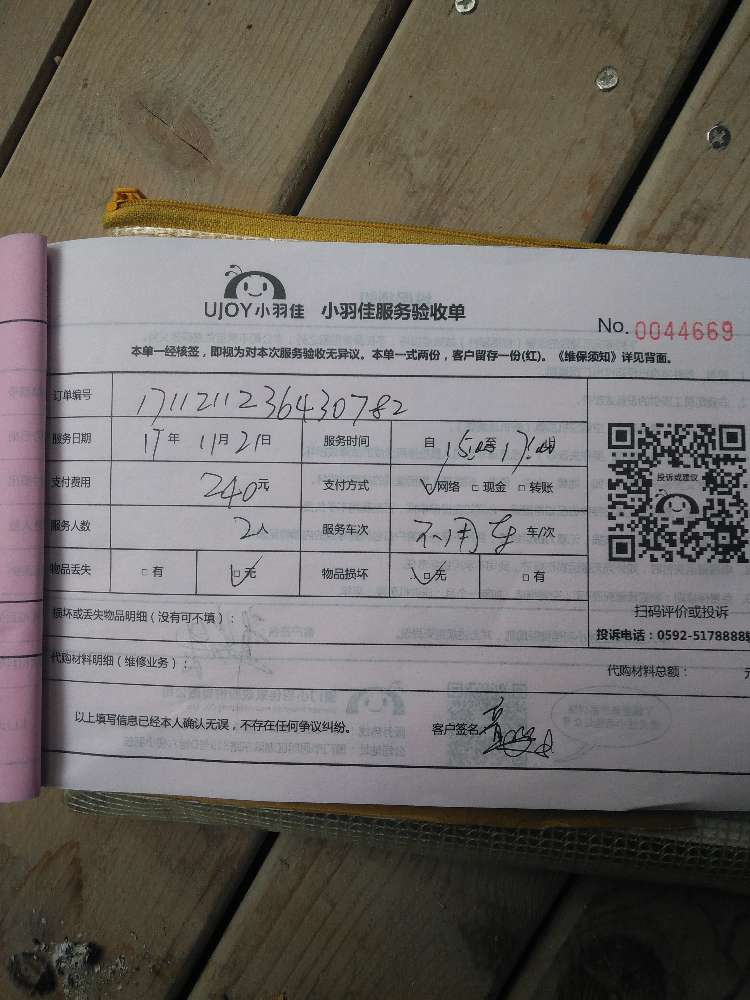 UJOY小羽佳 小羽佳服务验收单
No. 0044669
本单一经核签，即视为对本次服务验收无异议。本单一式两份，客户留存一份(红)。《维保须知》详见背面。
订单编号 17112112364307​82
服务日期 17年 11月21日 服务时间 自 15:00至17:00
支付费用 240元 支付方式 □网络 □现金 □转账
服务人数 2人 服务车次 不用车 车/次
物品丢失 □有 □无 物品损坏 □无 □有
投诉或建议
扫码评价或投诉
投诉电话：0592-5178888
损坏或丢失物品明细（没有可不填）：
代购材料明细（维修业务）： 代购材料总额： 元
以上填写信息已经本人确认无误，不存在任何争议纠纷。 客户签名